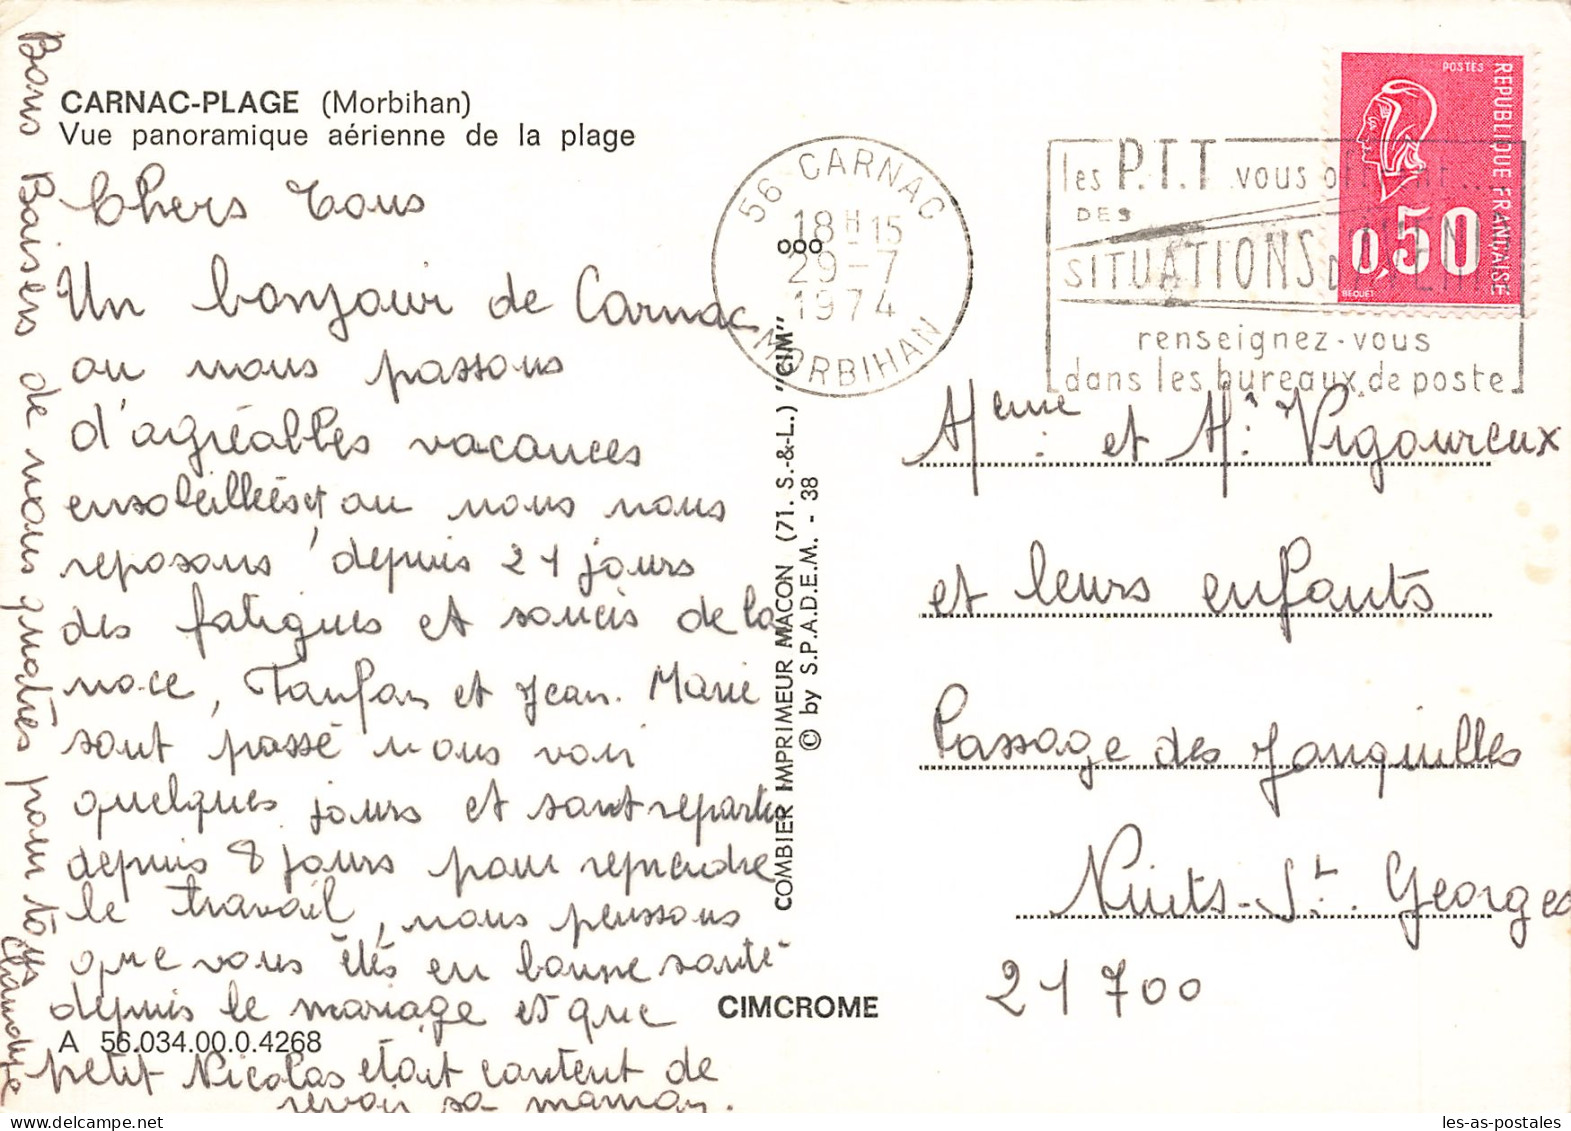 CARNAC-PLAGE (Morbihan)
Vue panoramique aérienne de la plage
Chers Tous
Un bonjour de Carnac
ou nous passons
d'agréables vacances
ensoleillées et ou nous nous
reposons depuis 21 jours
des fatigues et soucis de la
noce, et Jean-Marie
sont passé nous voir
quelques jours et sont repartis
depuis 8 jours pour reprendre
le travail, nous penssons
que vous êtés en bonne santé
depuis le mariage et que
petit Nicolas était content de
revoir sa maman.
Bons Baisers de nous quatres pour tous
A 56.034.00.0.4268
CIMCROME
COMBIER IMPRIMEUR MACON (71. S.-&-L.) "CIM"
© by S.P.A.D.E.M. - 38
56 CARNAC
18H-15
ooo
29-7
1974
MORBIHAN
les P.T.T vous offrent...
DES
SITUATIONS D'AVENIR
renseignez-vous
dans les bureaux de poste
POSTES
REPUBLIQUE FRANÇAISE
0,50
BEQUET
Meme et Mr. Vigoureux
et leurs enfants
Passage des Jonquilles
Nuits-St. Georges
21700
les-as-postales